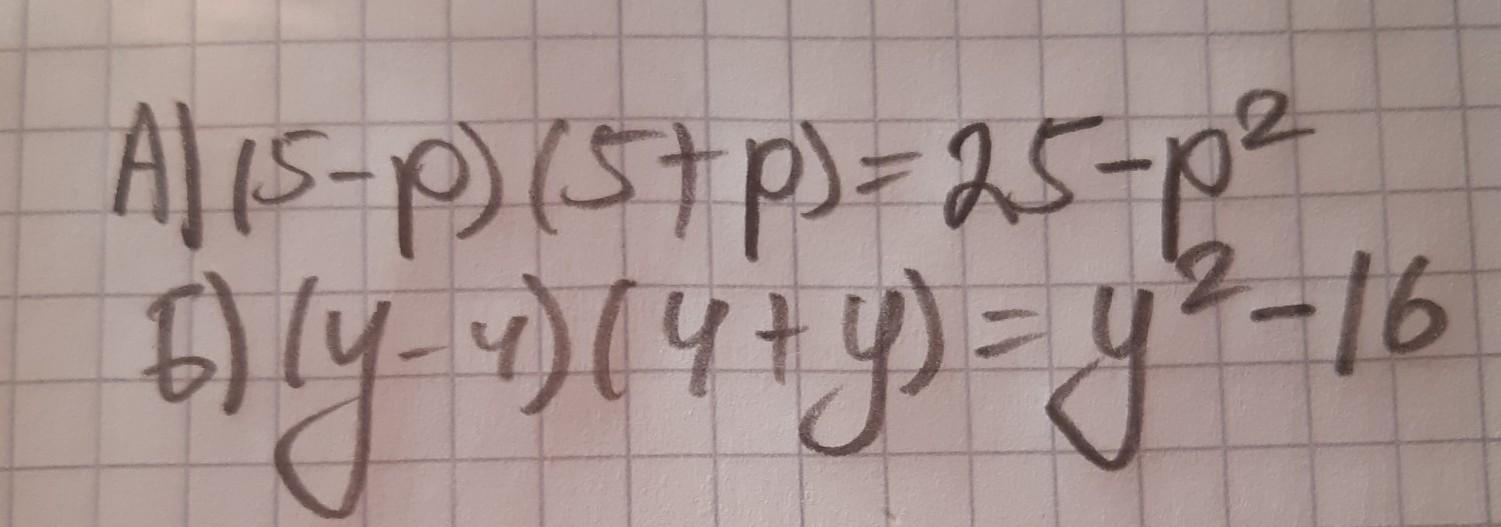 А) (5-p)(5+p)=25-p²
Б) (y-4)(4+y)=y²-16